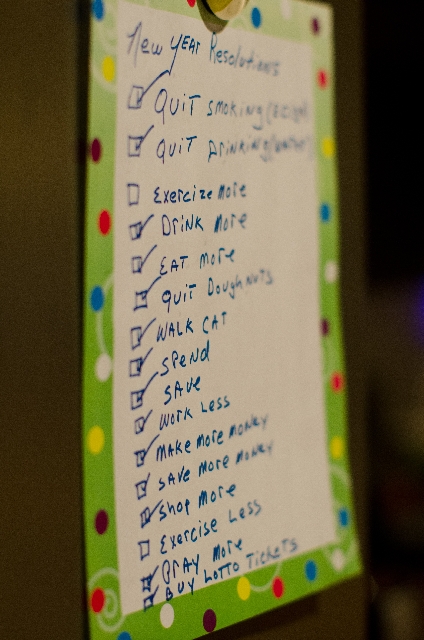 New YEAR Resolutions
QUIT smoking
QUIT Drinking
Exercize more
DRINK more
EAT more
QUIT DoughNuts
WALK CAT
SPEND
SAVE
WORK LESS
MAKE MORE MONEY
SAVE MORE MONEY
SHOP MORE
Exercise Less
PRAY MORE
BUY LOTTO TICKETS